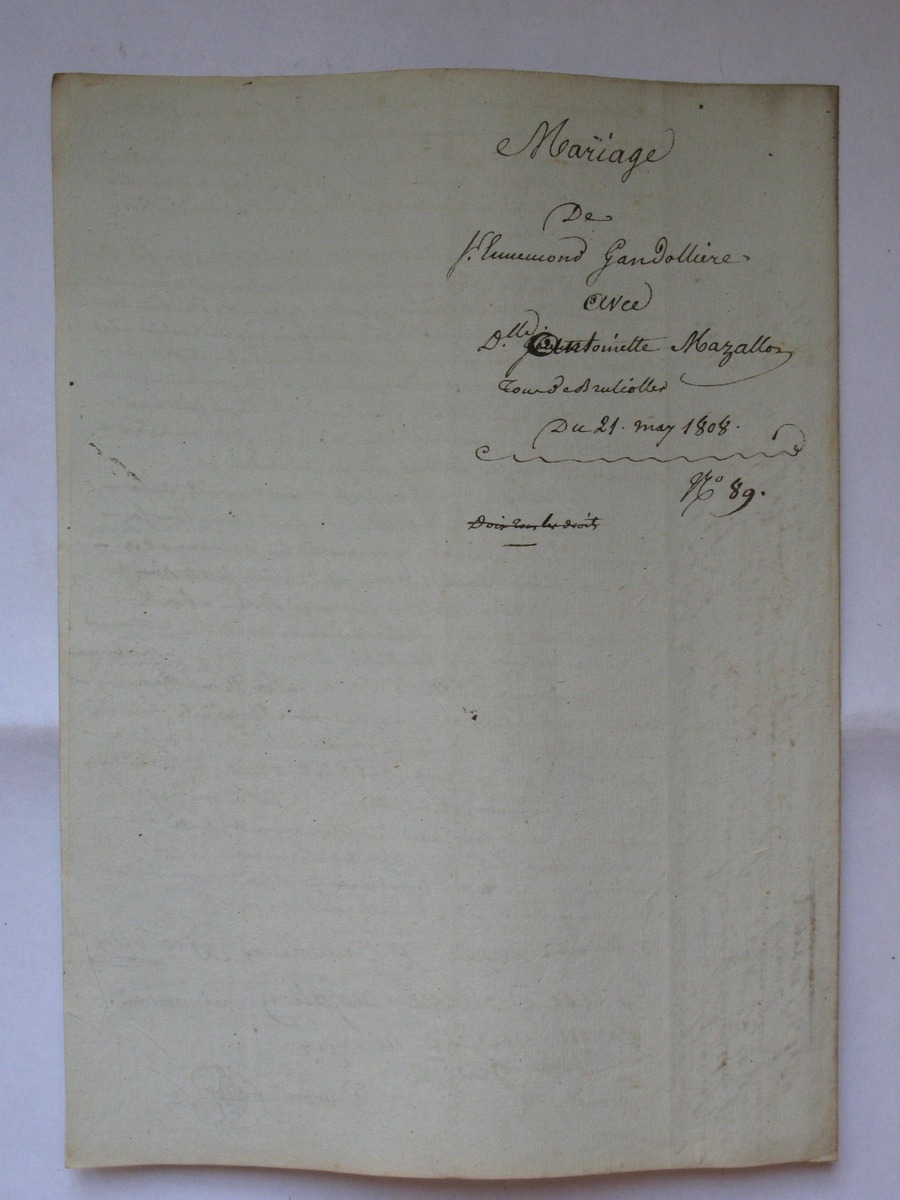 Mariage
De
Sr. Ennemond Gandolliere
avec
D.lle Antoinette Mazallon
Tous de Brulioller
Du 21. may 1808.
No 89.
Doit tous les droits